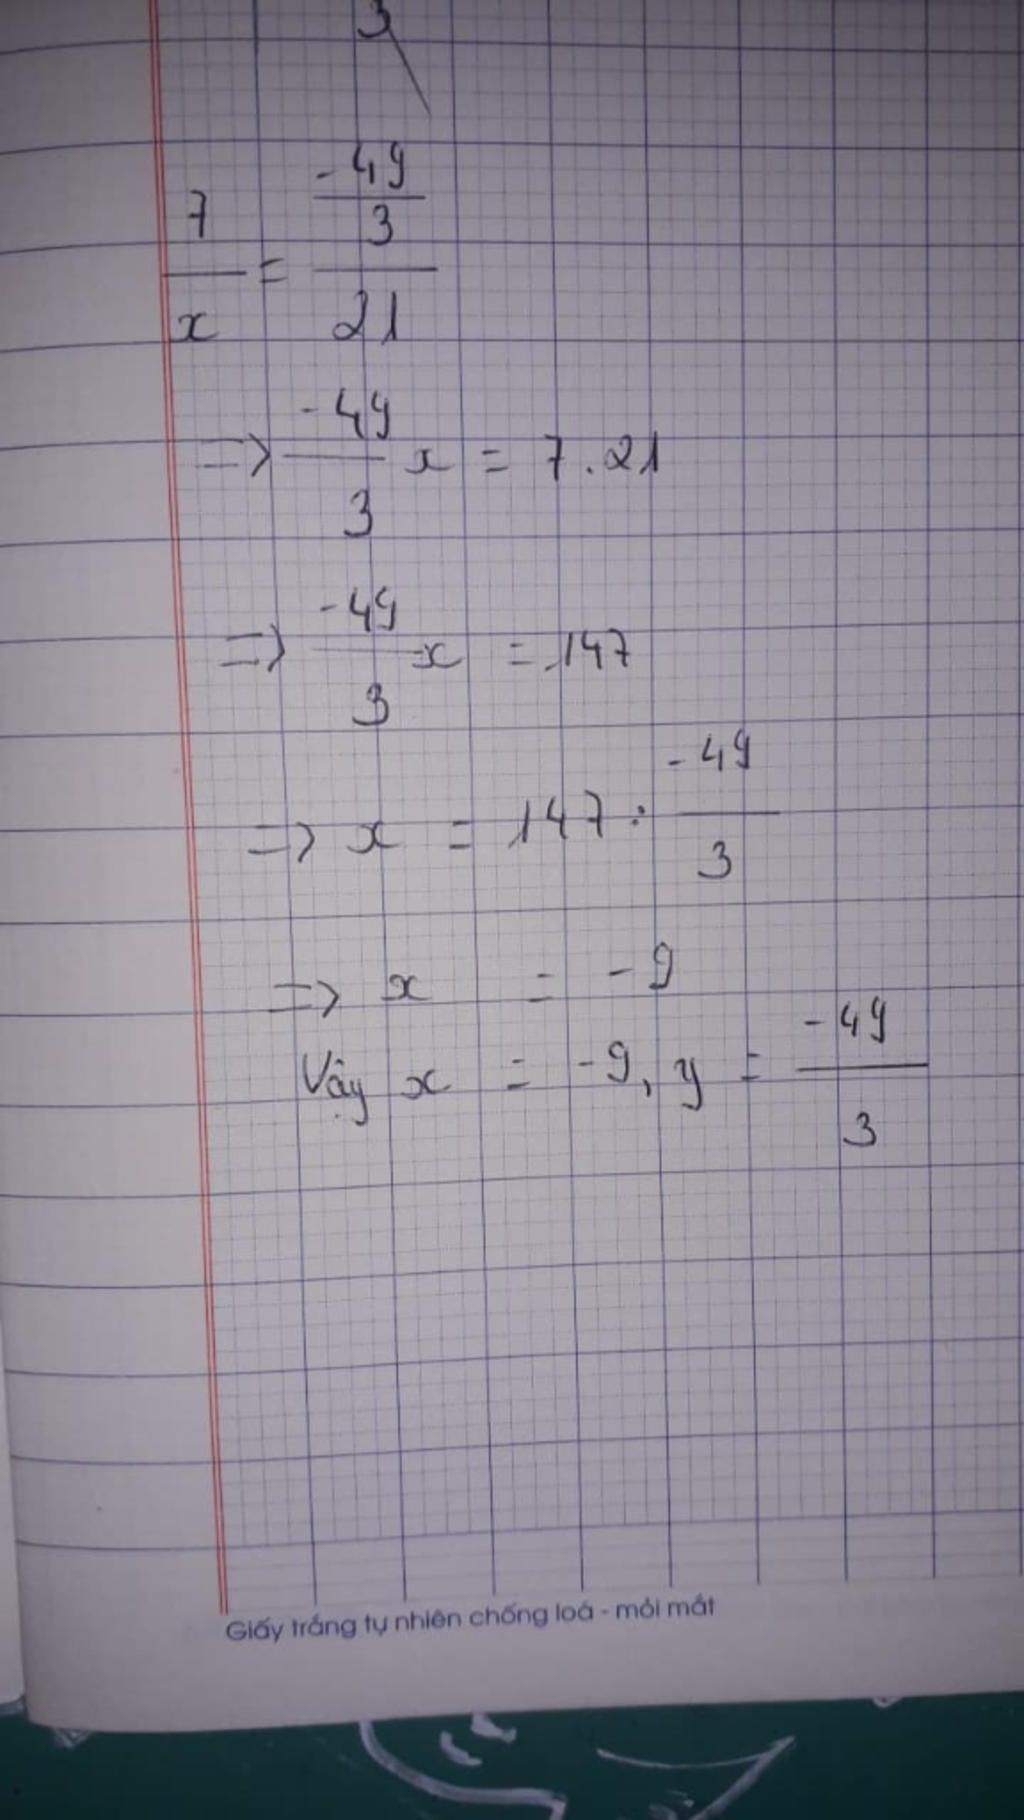 3
7/x = (-49/3)/21
=> -49/3 x = 7.21
=> -49/3 x = 147
=> x = 147 : -49/3
=> x = -9
Vậy x = -9, y = -49/3
Giấy trắng tự nhiên chống loá - mỏi mắt